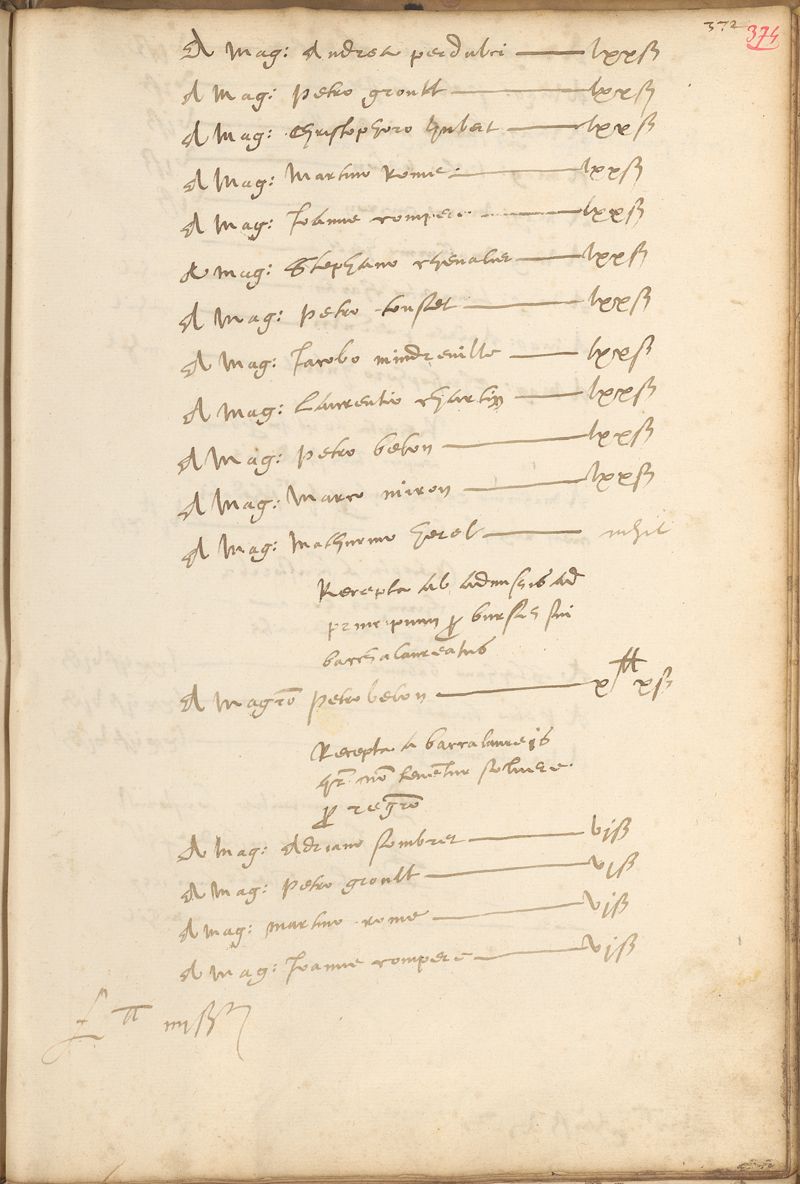 372
374
A Mag: Andrea perdulci — lxxß
A Mag: Petro groult — lxxß
A Mag: Christophoro hubert — lxxß
A Mag: Martino Rome — lxxß
A Mag: Joanne compere — lxxß
A Mag: Stephano chevalier — lxxß
A Mag: Petro tonslet — lxxß
A Mag: Jacobo mindreville — lxxß
A Mag: Laurentio chartix — lxxß
A Mag: Petro belon — lxxß
A Mag: Marco miron — lxxß
A Mag: Mathurino herel — nihil
Recepta ab admissis ad
principium p bursis sui
bacchalaureatus
A Magro Petro belon — x tt xß
Recepta a baccalaureis
qr non tenentur solvere
p regro
A Mag: Adriano sombret — vjß
A Mag: Petro groult — vjß
A Mag: Martino rome — vjß
A Mag: Joanne compere — vjß